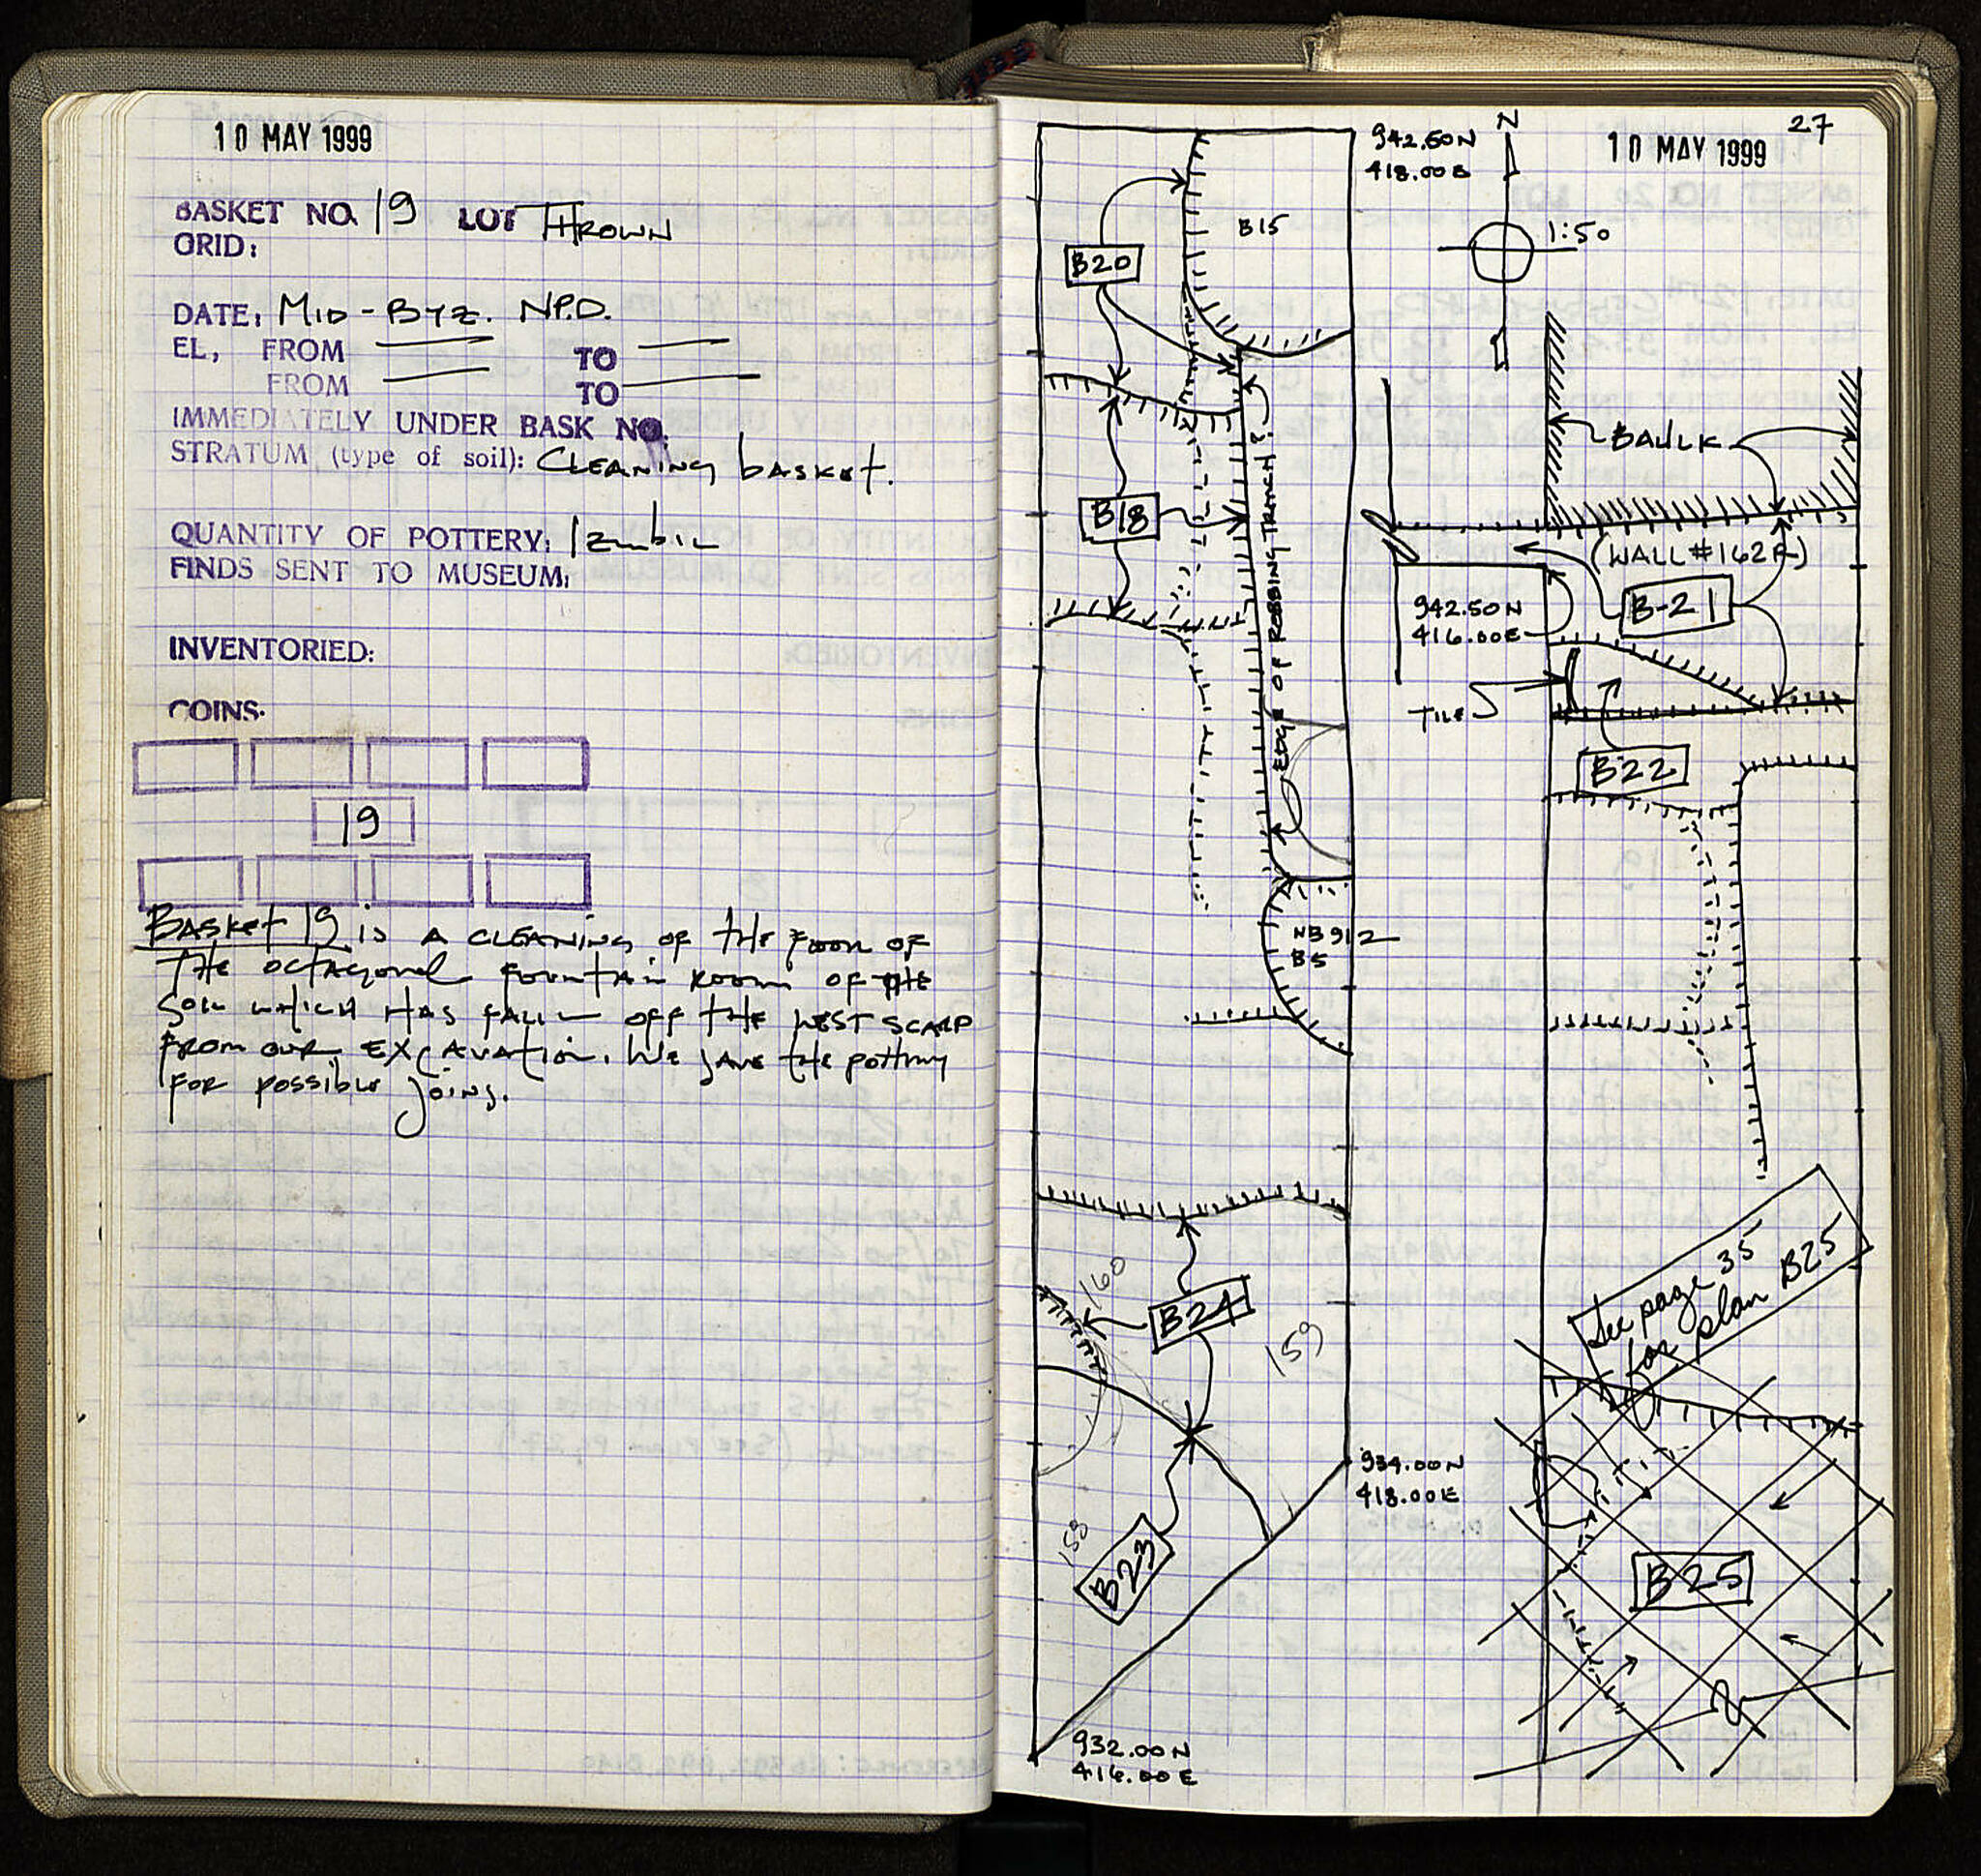 10 MAY 1999
BASKET NO. 19 LOT THROWN
GRID:
DATE, MID-BYZ. N.P.D.
EL, FROM — TO —
FROM — TO —
IMMEDIATELY UNDER BASK NO.
STRATUM (type of soil): CLEANING basket.
QUANTITY OF POTTERY, 1
FINDS SENT TO MUSEUM,
INVENTORIED:
COINS.
19
BASKET 19 is A CLEANING OF THE FLOOR OF
THE octagonal fountain room OF THE
Soil WHICH HAS FALLN OFF THE WEST SCARP
FROM OUR EXCAVATION. We SAVE the pottery
FOR possible joins.
27
10 MAY 1999
942.50N
418.00E
N
1:50
B15
B20
B18
EDGE OF ROBBING TRENCH?
BAULK
(WALL #162A)
942.50N
416.00E
B-21
TILE
B22
NB912
B5
160
B24
159
158
B23
934.00N
418.00E
932.00N
416.00E
See page 35
for plan B25
B25